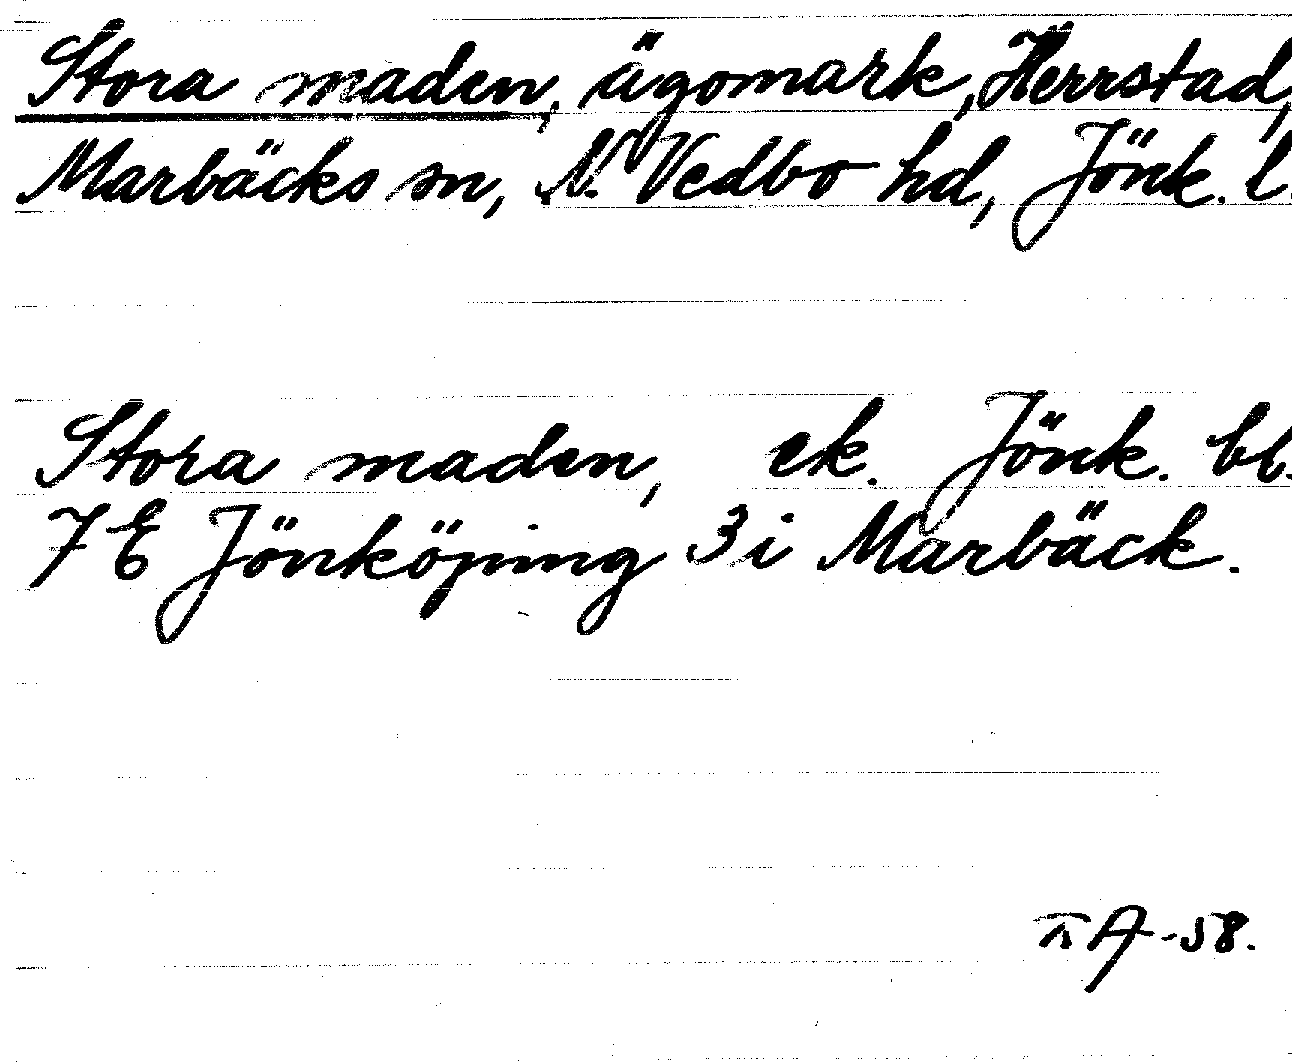 Stora maden, ägomark, Herrstad,
Marbäcks sn, N. Vedbo hd, Jönk. l.
Stora maden, ek. Jönk. bl.
7E Jönköping 3i Marbäck.
A-58.